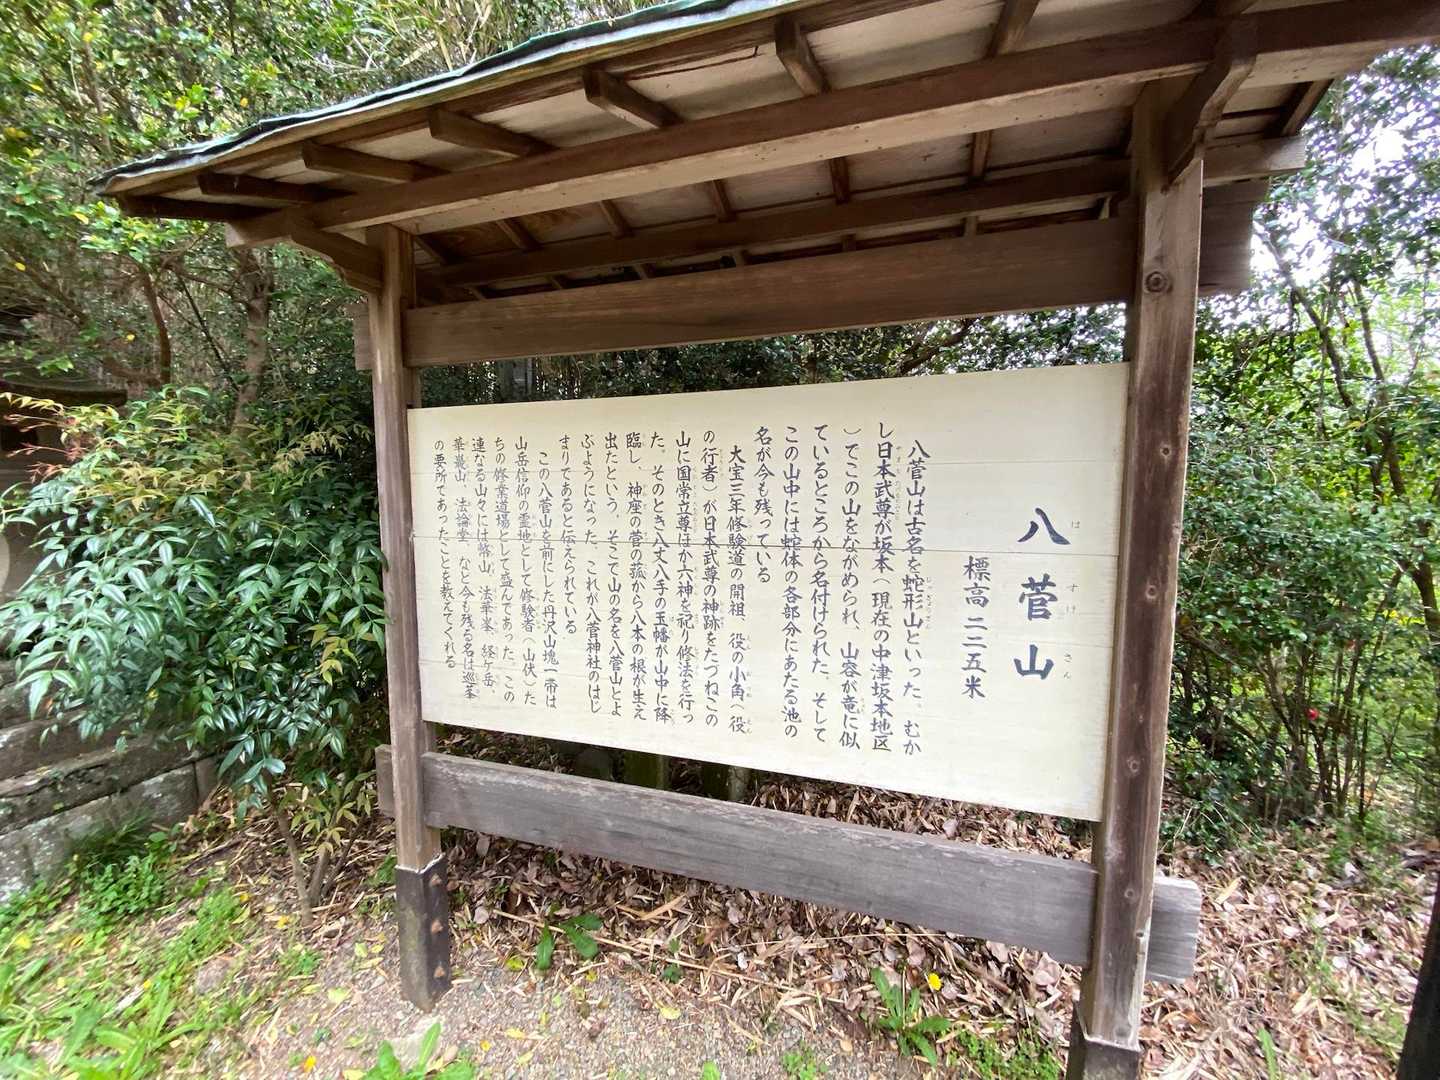 八菅山
はすげさん
標高二二五米
八菅山は古名を蛇形山といった。むか
し日本武尊が坂本（現在の中津坂本地区
）でこの山をながめられ、山容が竜に似
ているところから名付けられた。そして
この山中には蛇体の各部分にあたる池の
名が今も残っている
大宝三年修験道の開祖、役の小角（役
の行者）が日本武尊の神跡をたづねこの
山に国常立尊ほか六神を祀り修法を行っ
た。そのとき八丈八手の玉幡が山中に降
臨し、神座の菅の菰から八本の根が生え
出たという。そこで山の名を八菅山とよ
ぶようになった。これが八菅神社のはじ
まりであると伝えられている
この八菅山を前にした丹沢山塊一帯は
山岳信仰の霊地として修験者（山伏）た
ちの修業道場として盛んであった。この
連なる山々には幣山、法華峯、経ケ岳、
華厳山、法論堂、など今も残る名は巡峯
の要所であったことを教えてくれる